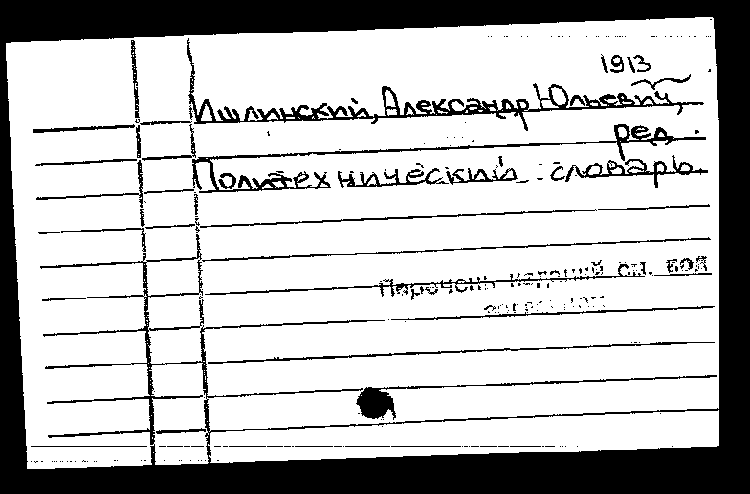 1913
Ишлинский, Александр Юльевич,
ред.
Политехнический словарь.
Перечень изданий см. под
заглавием